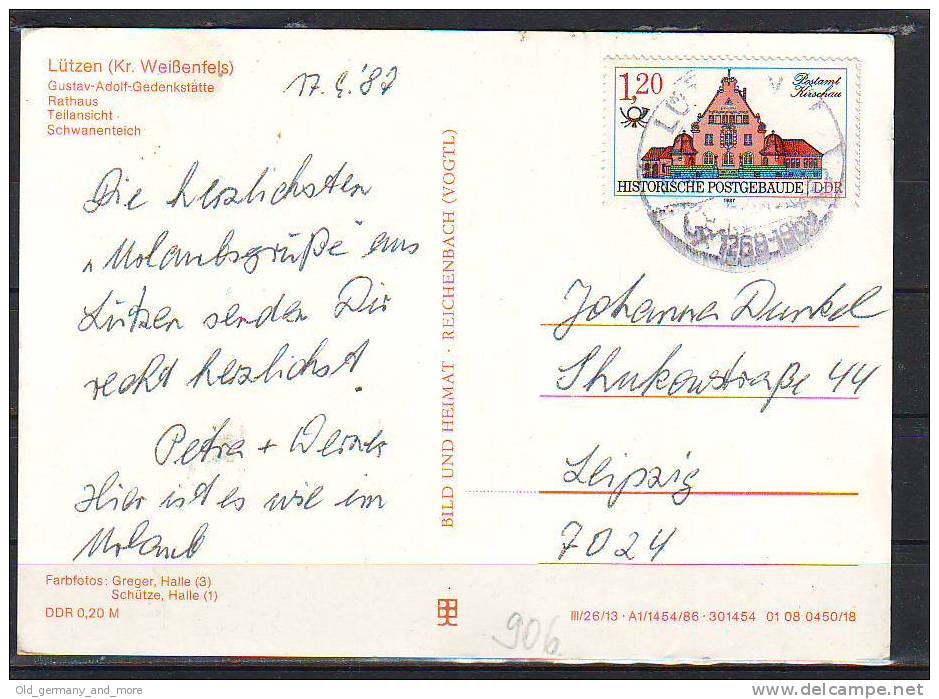 Lützen (Kr. Weißenfels)
Gustav-Adolf-Gedenkstätte
Rathaus
Teilansicht
Schwanenteich
17. 4. '87
Die herzlichsten
„Urlaubsgrüße" aus
Lützen senden Dir
recht herzlichst.
Petra + Werner
Hier ist es wie im
Urlaub
Farbfotos: Greger, Halle (3)
Schütze, Halle (1)
DDR 0,20 M
BILD UND HEIMAT · REICHENBACH (VOGTL)
1,20
Postamt
Kirschau
HISTORISCHE POSTGEBÄUDE DDR
1987
Johanna Dunkel
Shukowstraße 44
Leipzig
7024
906
III/26/13 · A1/1454/86 · 301454 01 08 0450/18
Old_germany_and_more
delcampe.net